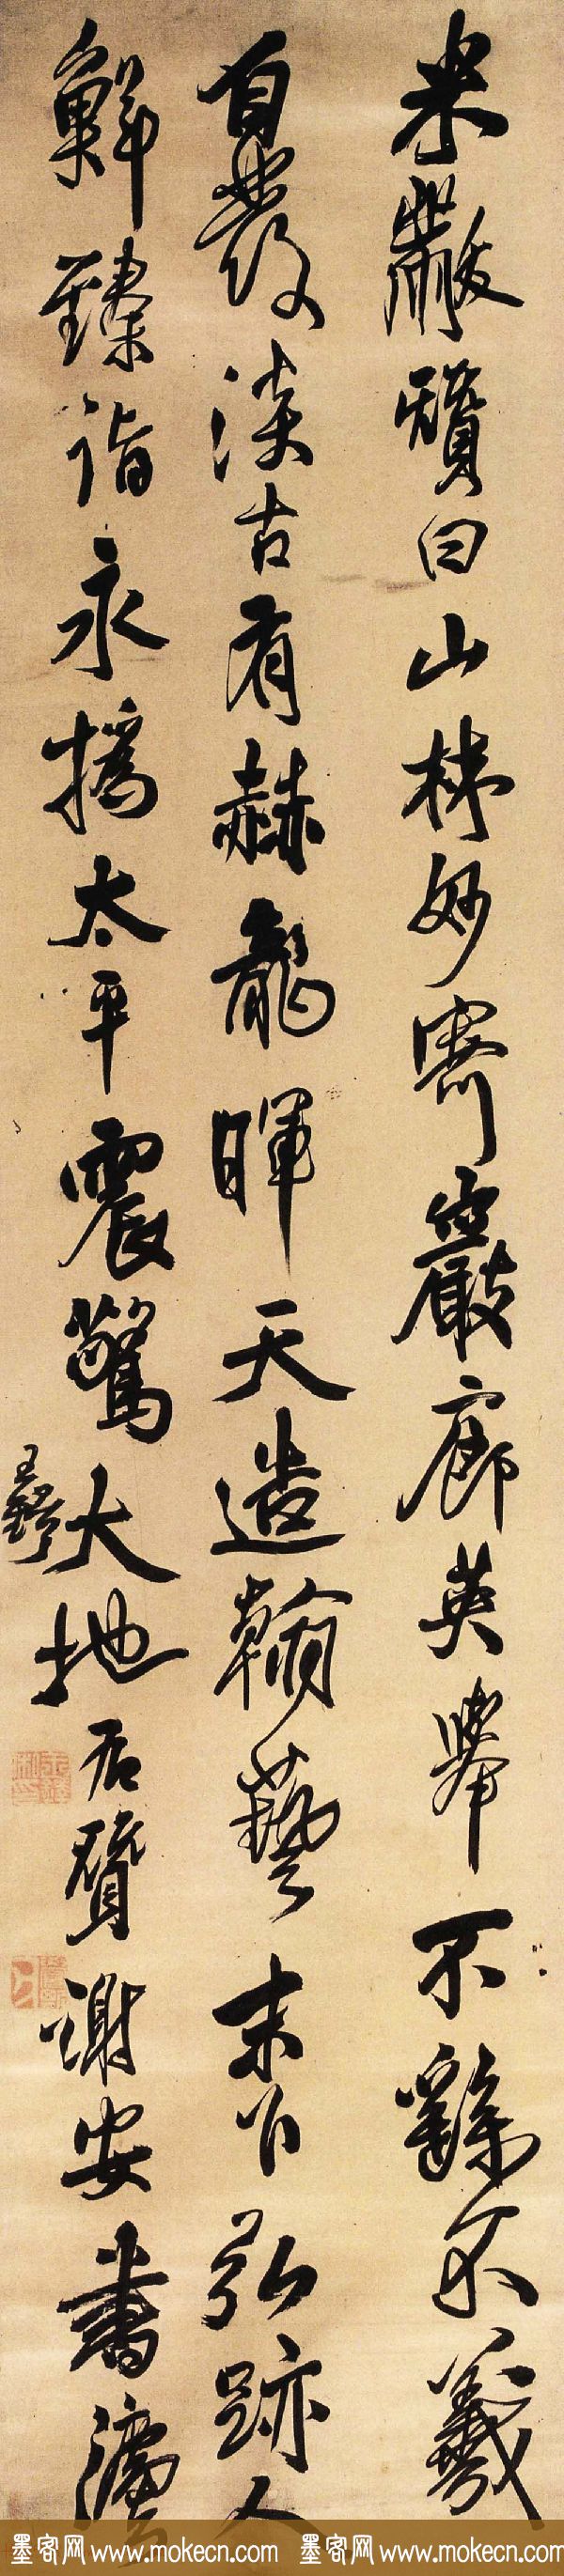 米黻贊曰山林妙寄巖廊英舉不繇不羲
自發淡古有赫龍暉天造翰藝末弘跡人
鮮臻詣永撝太平震驚大地右贊謝安書灋
王鐸
墨客网 www.mokecn.com 墨客网 www.mokecn.com